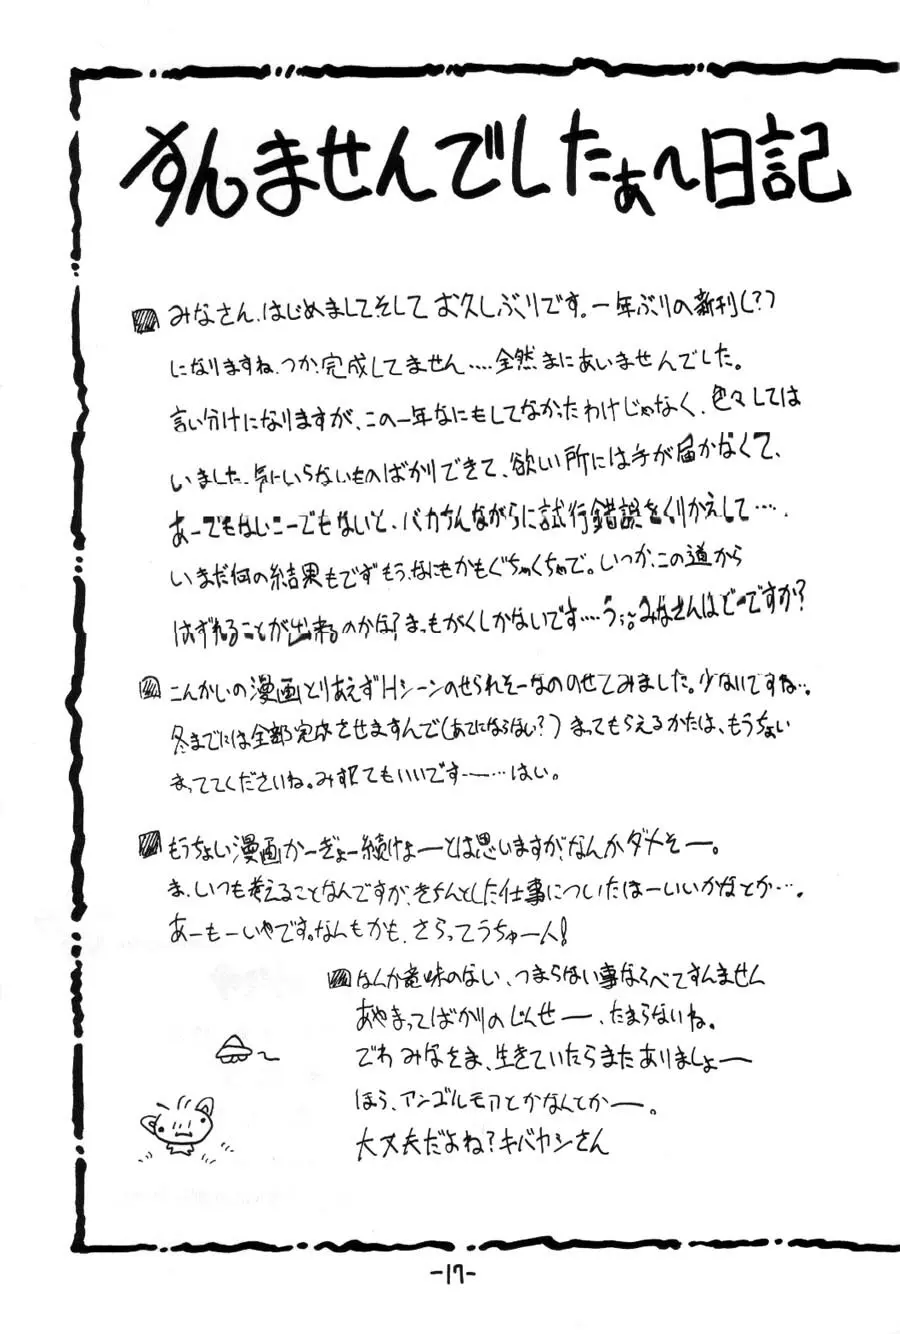 すんませんでしたぁ〜日記
みなさん、はじめまして、そして お久しぶりです。一年ぶりの新刊(?)
になりますね、つか、完成してません‥‥全然まにあいませんでした。
言い分けになりますが、この一年なにもしてなかったわけじゃなく、色々しては
いました、気にいらないものばかりできて、欲しい所には手が届かなくて、
あーでもないこーでもないと、バカみたいながらに試行錯誤をくりかえして‥‥、
いまだ何の結果もでずもう、なにもかもぐちゃくちゃで。いつか、この道から
はずれることが出来るのかな?まっもがくしかないです‥‥う゛ぅみなさんはどーですか?
こんかいの漫画とりあえずHシーンのせられそーなののせてみました。少ないですね‥。
冬までには全部完成させますんで(あてにならない?)まってもらえるかたは、もうちょい
まっててくださいね。みすててもいいですーー‥‥はい。
もうちょい漫画かーぎょー続けょーとは思いますが、なんかダメそー。
ま、いつも考えることなんですが、きちんとした仕事についたほーいいかなとか‥‥。
あーもーいやです。なんもかも、さらってうちゅー人!
なんか意味のない、つまらない事ならべてすんません
あやまってばかりのじんせー、たまらないね。
でわ みなさま、生きていたらまたありましょー
ほら、アンゴルモアとかなんとかー。
大丈夫だよね?キバヤシさん
-17-